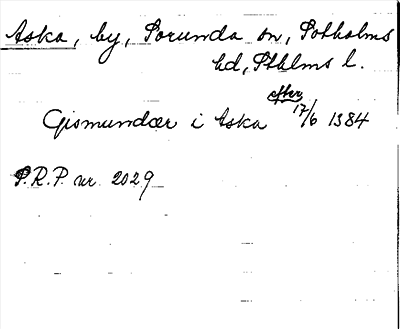 Aska, by, Sorunda sn, Sotholms
hd, Sthlms l.
efter
Gismundær i Aska 17/6 1384
P.R.P. nr. 2029